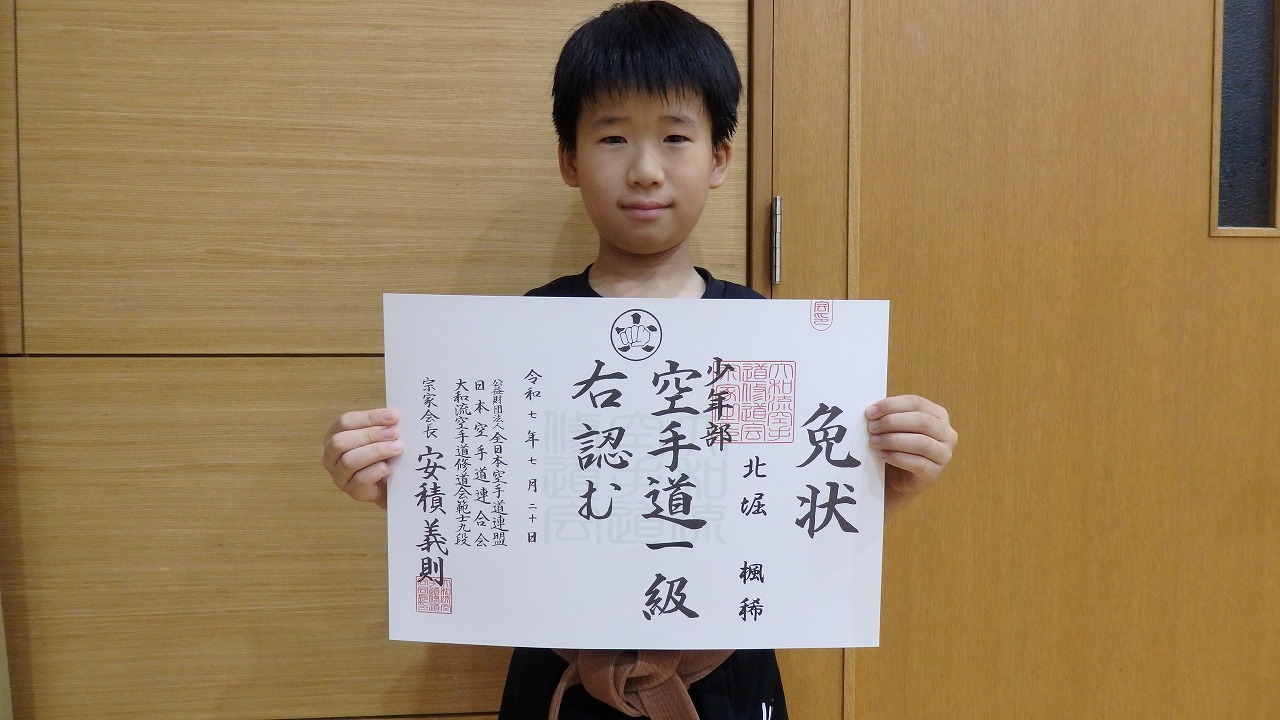 免状
北堀 楓稀
少年部
空手道一級
右認む
令和七年七月二十日
公益財団法人全日本空手道連盟
日本空手道連合会
大和流空手道修道会範士九段
宗家会長 安積義則